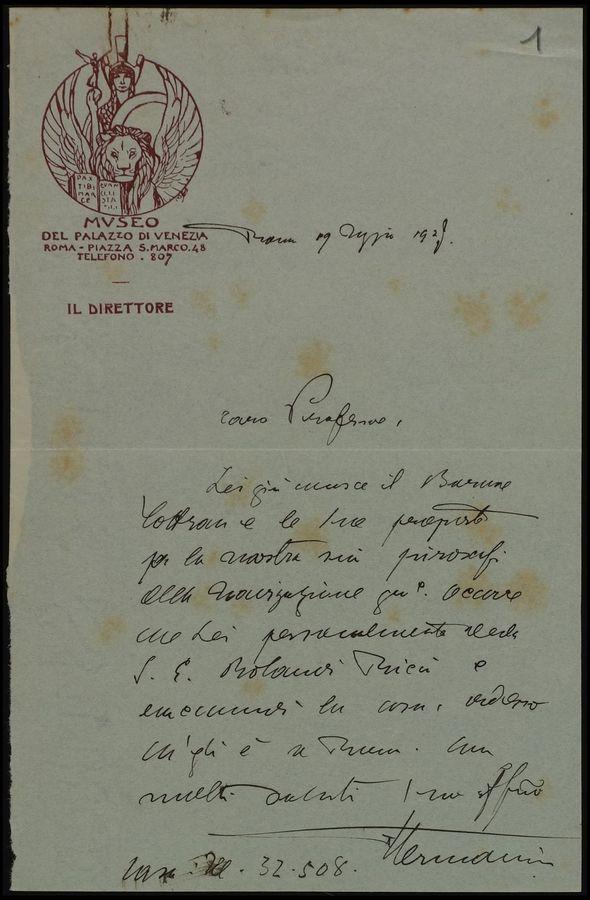 1
PAX
TIBI
MAR
CE
EVAN
GELI
STA
MVSEO
DEL PALAZZO DI VENEZIA
ROMA - PIAZZA S. MARCO. 48
TELEFONO . 807
IL DIRETTORE
Roma 19
Caro Professore,
Lei già conosce il Barone
Lottron e le sue proposte
per la mostra sui piroscafi
della Navigazione gen.e. Occorre
che Lei personalmente veda
S. E. Rolandi Ricci e
raccomandi la cosa, adesso
ch'egli è a Roma. Con
molti saluti suo aff.mo
Hermanin
32.508.